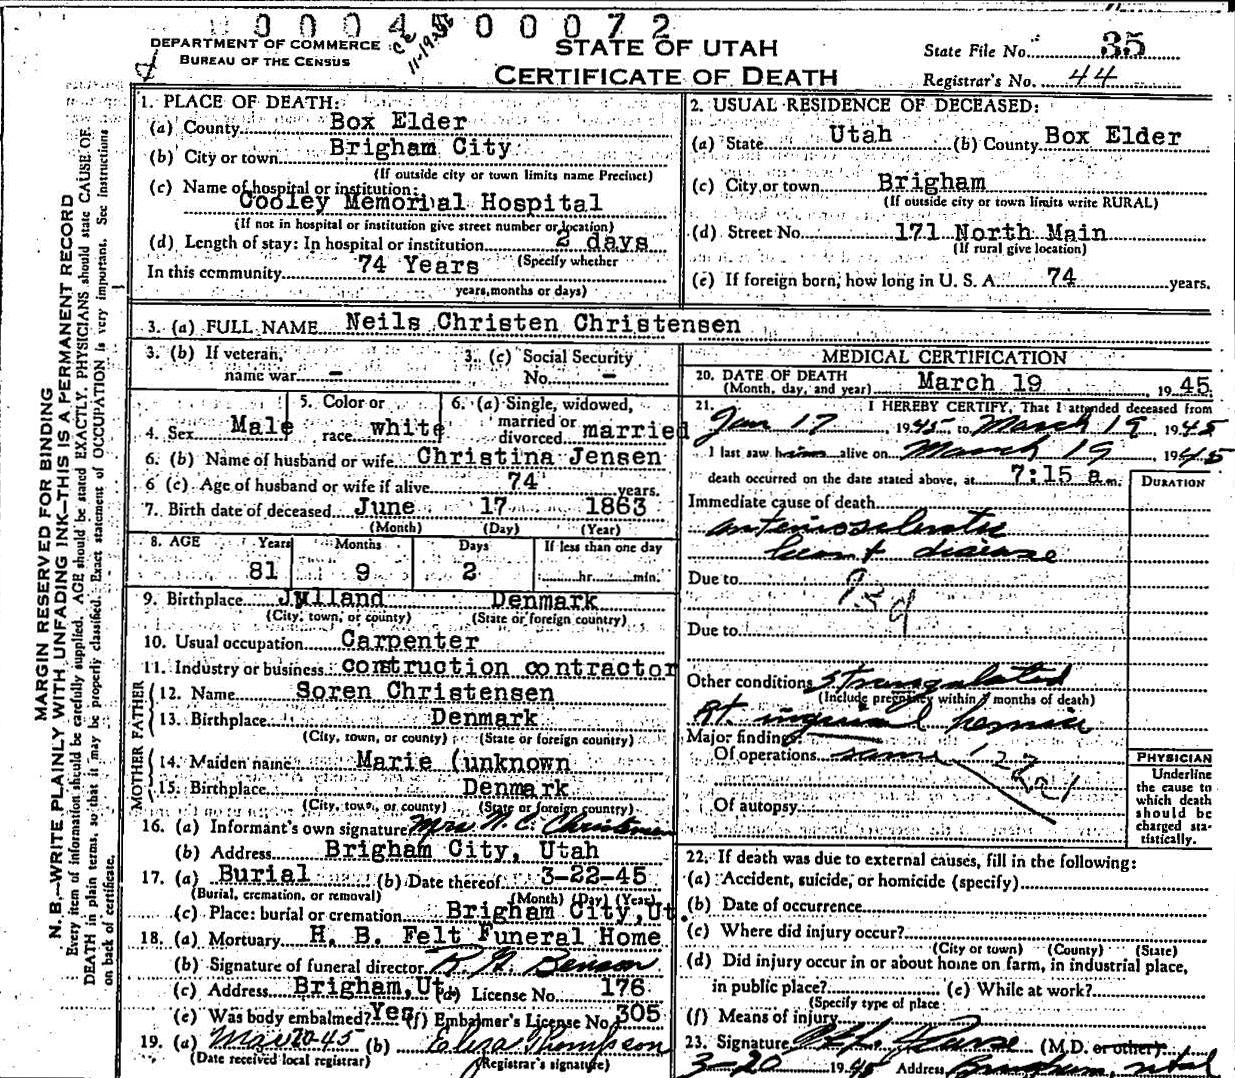 0 0 0 4 0 0 0 7 2
DEPARTMENT OF COMMERCE
BUREAU OF THE CENSUS
STATE OF UTAH
CERTIFICATE OF DEATH
State File No. 35
Registrar's No. 44
MARGIN RESERVED FOR BINDING
N. B.—WRITE PLAINLY WITH UNFADING INK—THIS IS A PERMANENT RECORD
Every item of information should be carefully supplied. AGE should be stated EXACTLY. PHYSICIANS should state CAUSE OF
DEATH in plain terms, so that it may be properly classified. Exact statement of OCCUPATION is very important. See instructions
on back of certificate.
1. PLACE OF DEATH:
(a) County Box Elder
(b) City or town Brigham City
(If outside city or town limits name Precinct)
(c) Name of hospital or institution:
Cooley Memorial Hospital
(If not in hospital or institution give street number or location)
(d) Length of stay: In hospital or institution 2 days
(Specify whether
In this community 74 Years
years, months or days)
2. USUAL RESIDENCE OF DECEASED:
(a) State Utah (b) County Box Elder
(c) City or town Brigham
(If outside city or town limits write RURAL)
(d) Street No. 171 North Main
(If rural give location)
(e) If foreign born, how long in U. S. A. 74 years.
3. (a) FULL NAME Neils Christen Christensen
3. (b) If veteran, name war –
3. (c) Social Security No. –
4. Sex Male
5. Color or race white
6. (a) Single, widowed, married or divorced married
6. (b) Name of husband or wife Christina Jensen
6 (c) Age of husband or wife if alive 74 years.
7. Birth date of deceased June 17 1863
(Month) (Day) (Year)
8. AGE Years Months Days If less than one day
81 9 2 hr. min.
9. Birthplace Jylland Denmark
(City, town, or county) (State or foreign country)
10. Usual occupation Carpenter
11. Industry or business construction contractor
FATHER
12. Name Soren Christensen
13. Birthplace Denmark
(City, town, or county) (State or foreign country)
MOTHER
14. Maiden name Marie (unknown
15. Birthplace Denmark
(City, town, or county) (State or foreign country)
16. (a) Informant's own signature Mrs N. C. Christensen
(b) Address Brigham City, Utah
17. (a) Burial (b) Date thereof 3-22-45
(Burial, cremation, or removal) (Month) (Day) (Year)
(c) Place: burial or cremation Brigham City, Ut.
18. (a) Mortuary H. B. Felt Funeral Home
(b) Signature of funeral director Benson
(c) Address Brigham, Ut. (d) License No. 176
(e) Was body embalmed? Yes (f) Embalmer's License No. 305
19. (a) Mar 20-45 (b) Eliza Thompson
(Date received local registrar) (Registrar's signature)
MEDICAL CERTIFICATION
20. DATE OF DEATH
(Month, day, and year) March 19 1945
21. I HEREBY CERTIFY, That I attended deceased from
Jan 17 1945 to March 19 1945
I last saw him alive on March 19 1945
death occurred on the date stated above, at 7:15 a.m.
DURATION
Immediate cause of death
arteriosclerotic
heart disease
Due to
Due to
Other conditions strangulated
(Include pregnancy within 3 months of death)
Rt. inguinal hernia
Major findings:
Of operations same
Of autopsy
PHYSICIAN
Underline
the cause to
which death
should be
charged sta-
tistically.
22. If death was due to external causes, fill in the following:
(a) Accident, suicide, or homicide (specify)
(b) Date of occurrence
(c) Where did injury occur?
(City or town) (County) (State)
(d) Did injury occur in or about home on farm, in industrial place,
in public place? (e) While at work?
(Specify type of place
(f) Means of injury
23. Signature (M.D. or other)
3-20 1945 Address Brigham, Utah